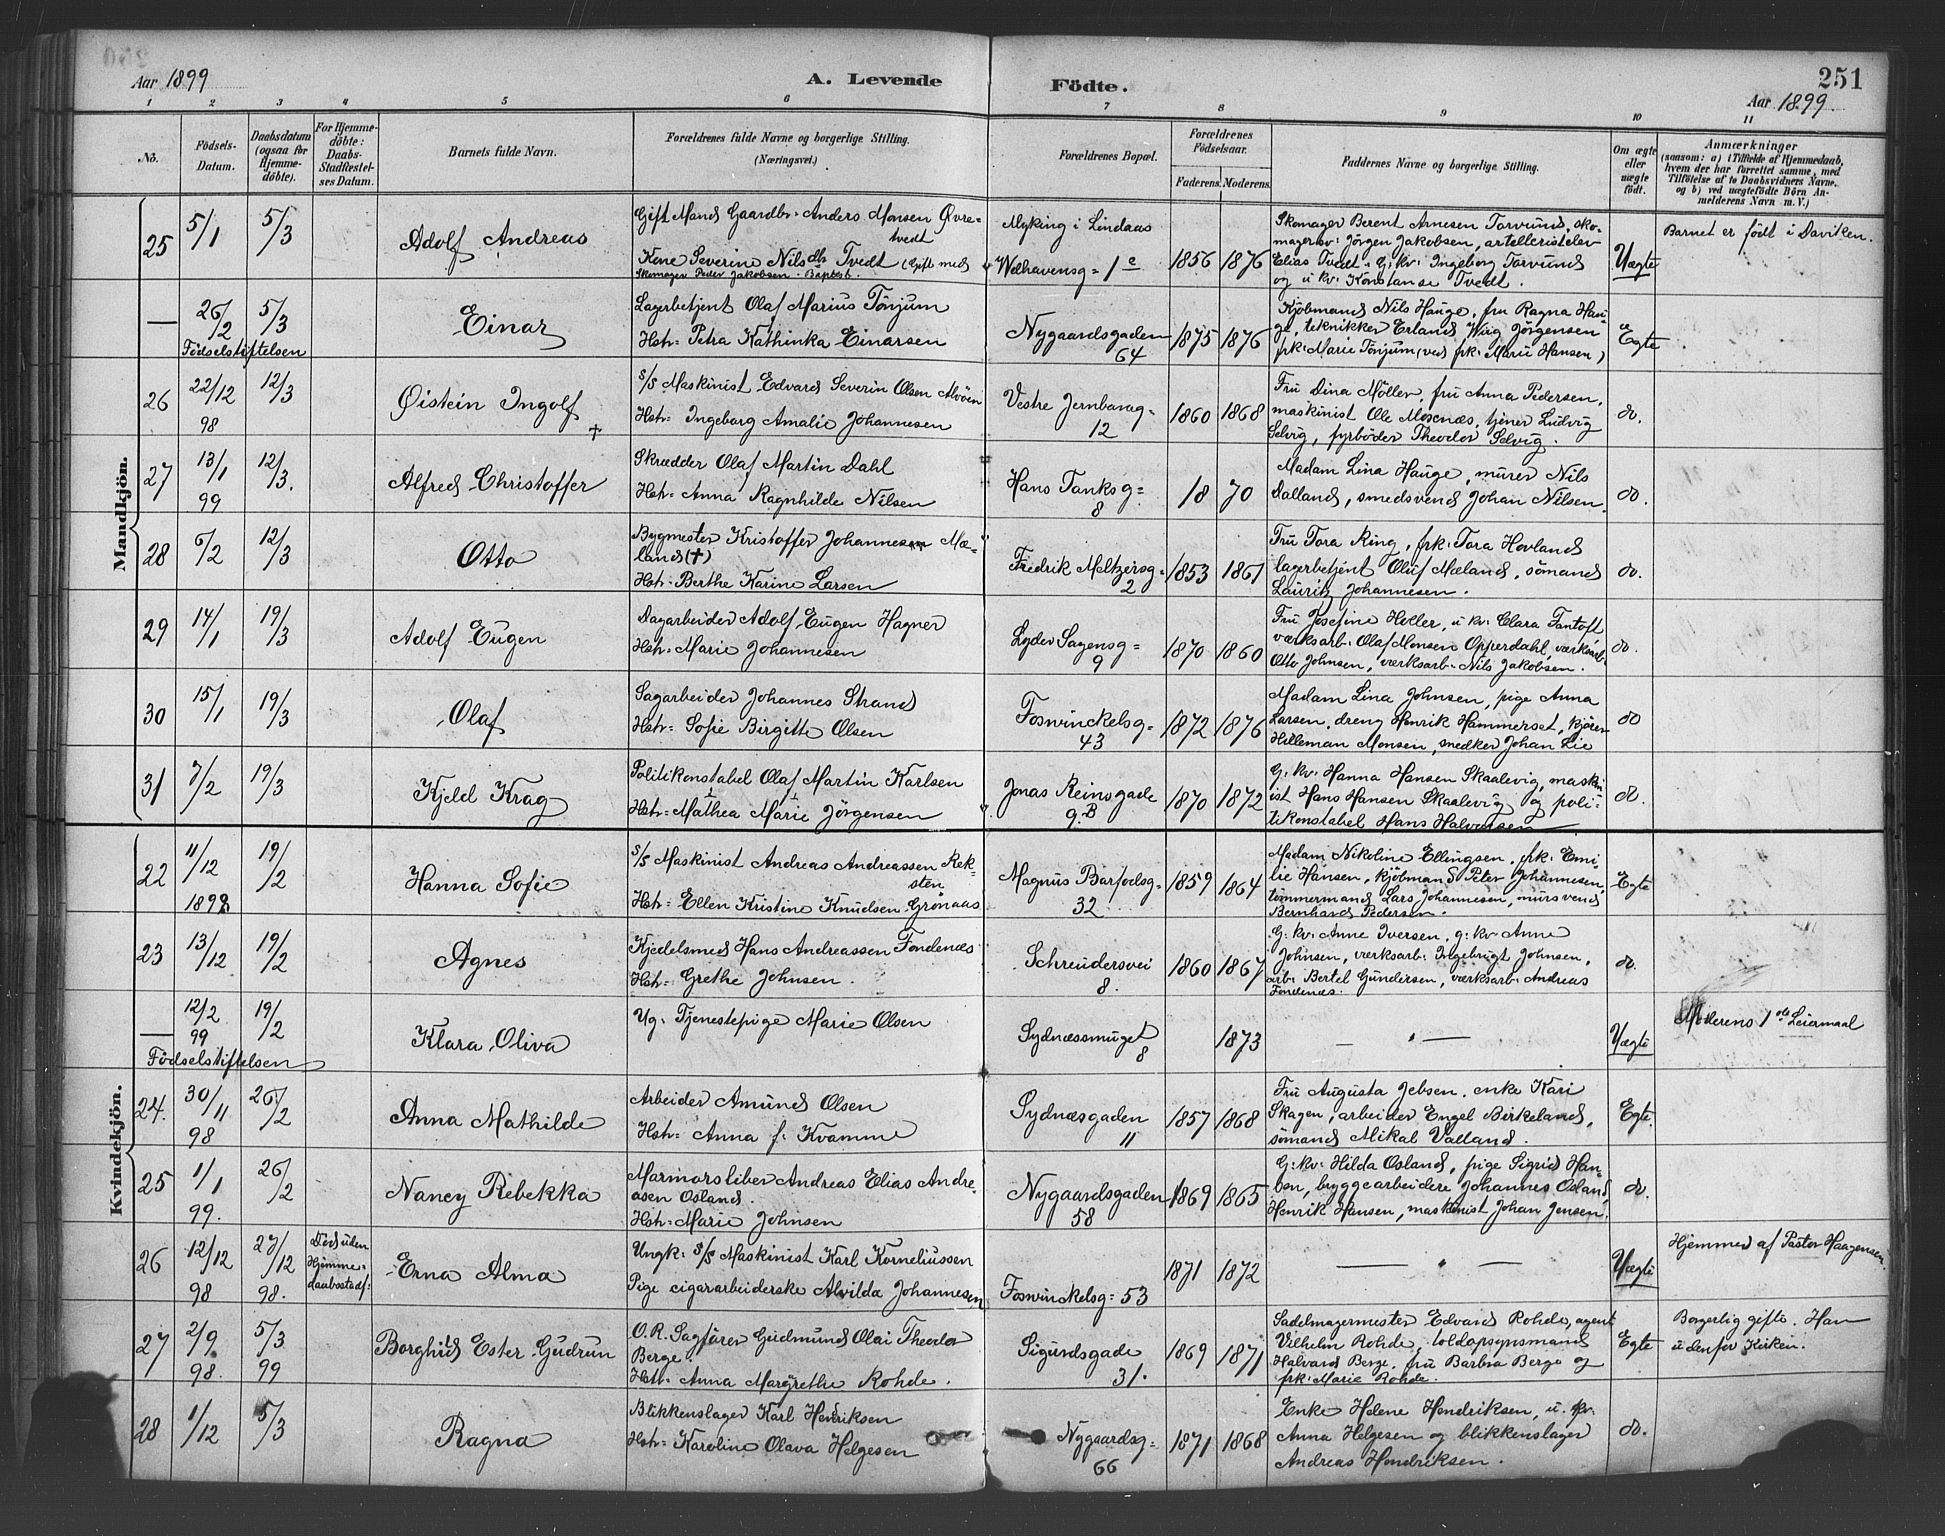 Aar 1899
A. Levende
Födte.
251
Aar 1899.
1 2 3 4 5 6 7 8 9 10 11
No.
Födsels-
Datum.
Daabsdatum
(ogsaa for
Hjemme-
döbte).
For Hjemme-
döbte:
Daabs-
Stadfæstel-
ses Datum.
Barnets fulde Navn.
Forældrenes fulde Navne og borgerlige Stilling.
(Næringsvei.)
Forældrenes Bopæl.
Forældrenes
Födselsaar.
Faderens. Moderens.
Faddernes Navne og borgerlige Stilling.
Om ægte
eller
uægte
födt.
Anmærkninger
(saasom: a) i Tilfælde af Hjemmedaab,
hvem der har forrettet samme, med
Tilföielse af to Daabsvidners Navne,
og b) ved uægtefödte Börn An-
melderens Navn m. V.)
Mandkjön.
25 5/1 5/3
Adolf Andreas
Gift Mand Gaardbr. Anders Monsen Øvre-
tvedt
Kone Severine Nilsdtr Tvedt (Gift med
Skomager Peder Jakobsen. Baptist.
Myking i Lindaas
Welhavensg= 1c
1856 1876
Skomager Berent Arnesen Tarvund, sko-
magersv: Jörgen Jakobsen, artilleristelev
Elias Tvedt. G: kv: Ingeborg Tarvund
og u. kv: Konstanse Tvedt.
Uægte
Barnet er födt i Daviken.
— 26/2 5/3
Födselstiftelsen
Einar
Lagerbetjent Olaf Marius Tönjum
Hstr= Petra Kathinka Einarsen
Nygaardsgaden
64
1875 1876
Kjöbmand Nils Hauge, fru Ragna Hau-
ge, tekniker Erland Wiig Jörgensen
frk: Marie Tönjum (ved frk: Marie Hansen)
Egte
26 22/12 98 12/3
Øistein Ingolf †
s/s Maskinist Edvard Severin Olsen Alvöen
Hstr= Ingeborg Amalie Johannesen
Vestre Jernbaneg=
12
1860 1868
Fru Dina Möller, fru Anna Pedersen,
maskinist Ole Mosenæs, tjener Ludvig
Selvig, fyrböder Theodor Selvig.
do.
27 13/1 99 12/3.
Alfred Christoffer
Skrædder Olaf Martin Dahl
Hstr= Anna Ragnhilde Nilsen
Hans Tanksg=
8
18 70
Madam Lina Hauge, murer Nils
Dalland, smedsvend Johan Nilsen.
do.
28 6/2 12/3
Otto
Bygmester Kristoffer Johannesen Mæ-
land (†)
Hstr= Berthe Karine Larsen
Fredrik Meltzersg=
2
1853 1861
Fru Tora Ring, frk: Tora Hovland
lagerbetjent Oluf Mæland, sömand
Lauritz Johannesen.
do.
29 14/1 19/3
Adolf Eugen
Dagarbeider Adolf Eugen Hagner
Hstr= Marie Johannesen
Lyder Sagensg=
9
1870 1860
Fru Josefine Holler, u. kv: Clara Fantoft
værksarb: Olaf Monsen Opperdahl, værksarb:
Otto Johnsen, værksarb: Nils Jakobsen.
do.
30 15/1 19/3
Olaf
Sagarbeider Johannes Strand
Hstr= Sofie Birgitte Olsen
Foswinckelsg=
43
1872 1876
Madam Lina Johnsen, pige Anna
Larsen, dreng Henrik Hammerset, kjörer
Hilleman Monsen, snedker Johan Lie
do
31 7/2 19/3
Kjeld Krag
Politikonstabel Olaf Martin Karlsen
Hstr= Mathea Marie Jörgensen
Jonas Reinsgade
9. B
1870 1872
G: kv: Hanna Hansen Skaalevig, maskin-
ist Hans Hansen Skaalevig og poli-
tikonstabel Hans Halvorsen
do.
Kvindekjön.
22 11/12 1898 19/2
Hanna Sofie
s/s Maskinist Andreas Andreassen Rek-
sten
Hstr= Ellen Kristine Knudsen Grönaas
Magnus Barfodsg=
32
1859 1864
Madam Nikoline Ellingsen, frk: Emi-
lie Hansen, kjöbmand Peter Johannesen,
tömmermand Lars Johannesen, mursvend
Bernhard Pedersen.
Egte
23 13/12 19/2
Agnes
Kjedelsmed Hans Andreassen Fondenæs
Hstr= Grethe Johnsen.
Schreudersvei
8.
1860 1867
G: kv: Anne Iversen, g: kv: Anne
Johnsen, værksarb: Ingebrigt Johnsen,
arb: Bertel Gundersen, værksarb: Andreas
Fondenæs.
do.
— 12/2 99 19/2
Födselstiftelsen
Klara Oliva
Ug: Tjenestepige Marie Olsen
Sydnæssmuget
8
1873
— " —
Uægte
Moderens 1ste Leiermaal
24. 30/11 98 26/2
Anna Mathilde
Arbeider Amund Olsen
Hstr= Anna f: Kvamme
Sydnæsgaden
11
1857 1868
Fru Augusta Jebsen, enke Kari
Skagen, arbeider Engel Birkeland,
sömand Mikal Valland.
Egte
25 1/1 99. 26/2
Nancy Rebekka
Marmorsliber Andreas Elias Andre-
asen Osland.
Hstr= Marie Johnsen
Nygaardsgaden
58
1869 1865
G: kv: Hilda Osland, pige Sigrid Han-
sen, bryggearbeidere Johannes Osland
Henrik Hansen, maskinist Johan Jensen.
do.
26 12/12 98 27/12 98.
Död uden
Hjemme-
daabsstadf:
Erna Alma
Ungk: s/s Maskinist Karl Korneliussen
Pige cigararbeiderske Alvilda Johannesen
Foswinckelsg= 53
1871 1872
— " —
Uægte
Hjemmed af Pastor Haagensen.
27 2/9 98. 5/3 99
Borghild Ester Gudrun
O.R. Sagförer Gudmund Olai Theodor
Berge.
Hstr= Anna Margrethe Rohde.
Sigurdsgade
31.
1869 1871
Sadelmagermester Edvard Rohde, agent
Vilhelm Rohde, toldopsynsmand
Halvard Berge, fru Barbra Berge og
frk: Marie Rohde.
Egte
Borgerlig gifte. Han
udenfor Kirken.
28 1/12 5/3
Ragna
Blikkenslager Karl Henriksen
Hstr= Karoline Olava Helgesen
Nygaardsg=
66
1871 1868
Enke Helene Hendriksen, u. kv:
Anna Helgesen og blikkenslager
Andreas Hendriksen.
do.